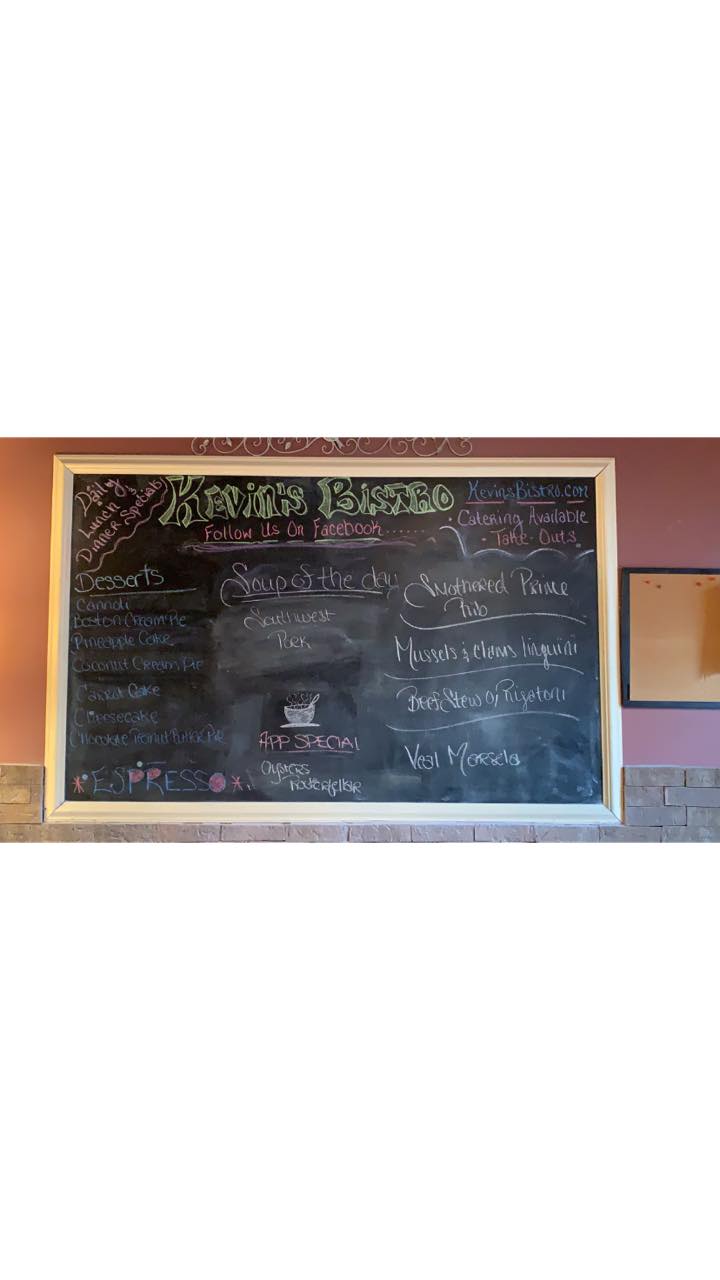 Daily
Lunch &
Dinner Specials
Kevin's Bistro
Follow Us On Facebook.......
KevinsBistro.com
· Catering Available
· Take-Outs
Desserts
Cannoli
Boston Cream Pie
Pineapple Cake
Coconut Cream Pie
Carrot Cake
Cheesecake
Chocolate Peanut Butter Pie
*ESPRESSO*
Soup of the day
Southwest
Pork
APP SPECIAL
Oysters
Rockefeller
Smothered Prince
Rib
Mussels & Clams linguini
Beef Stew o/ Rigatoni
Veal Marsala